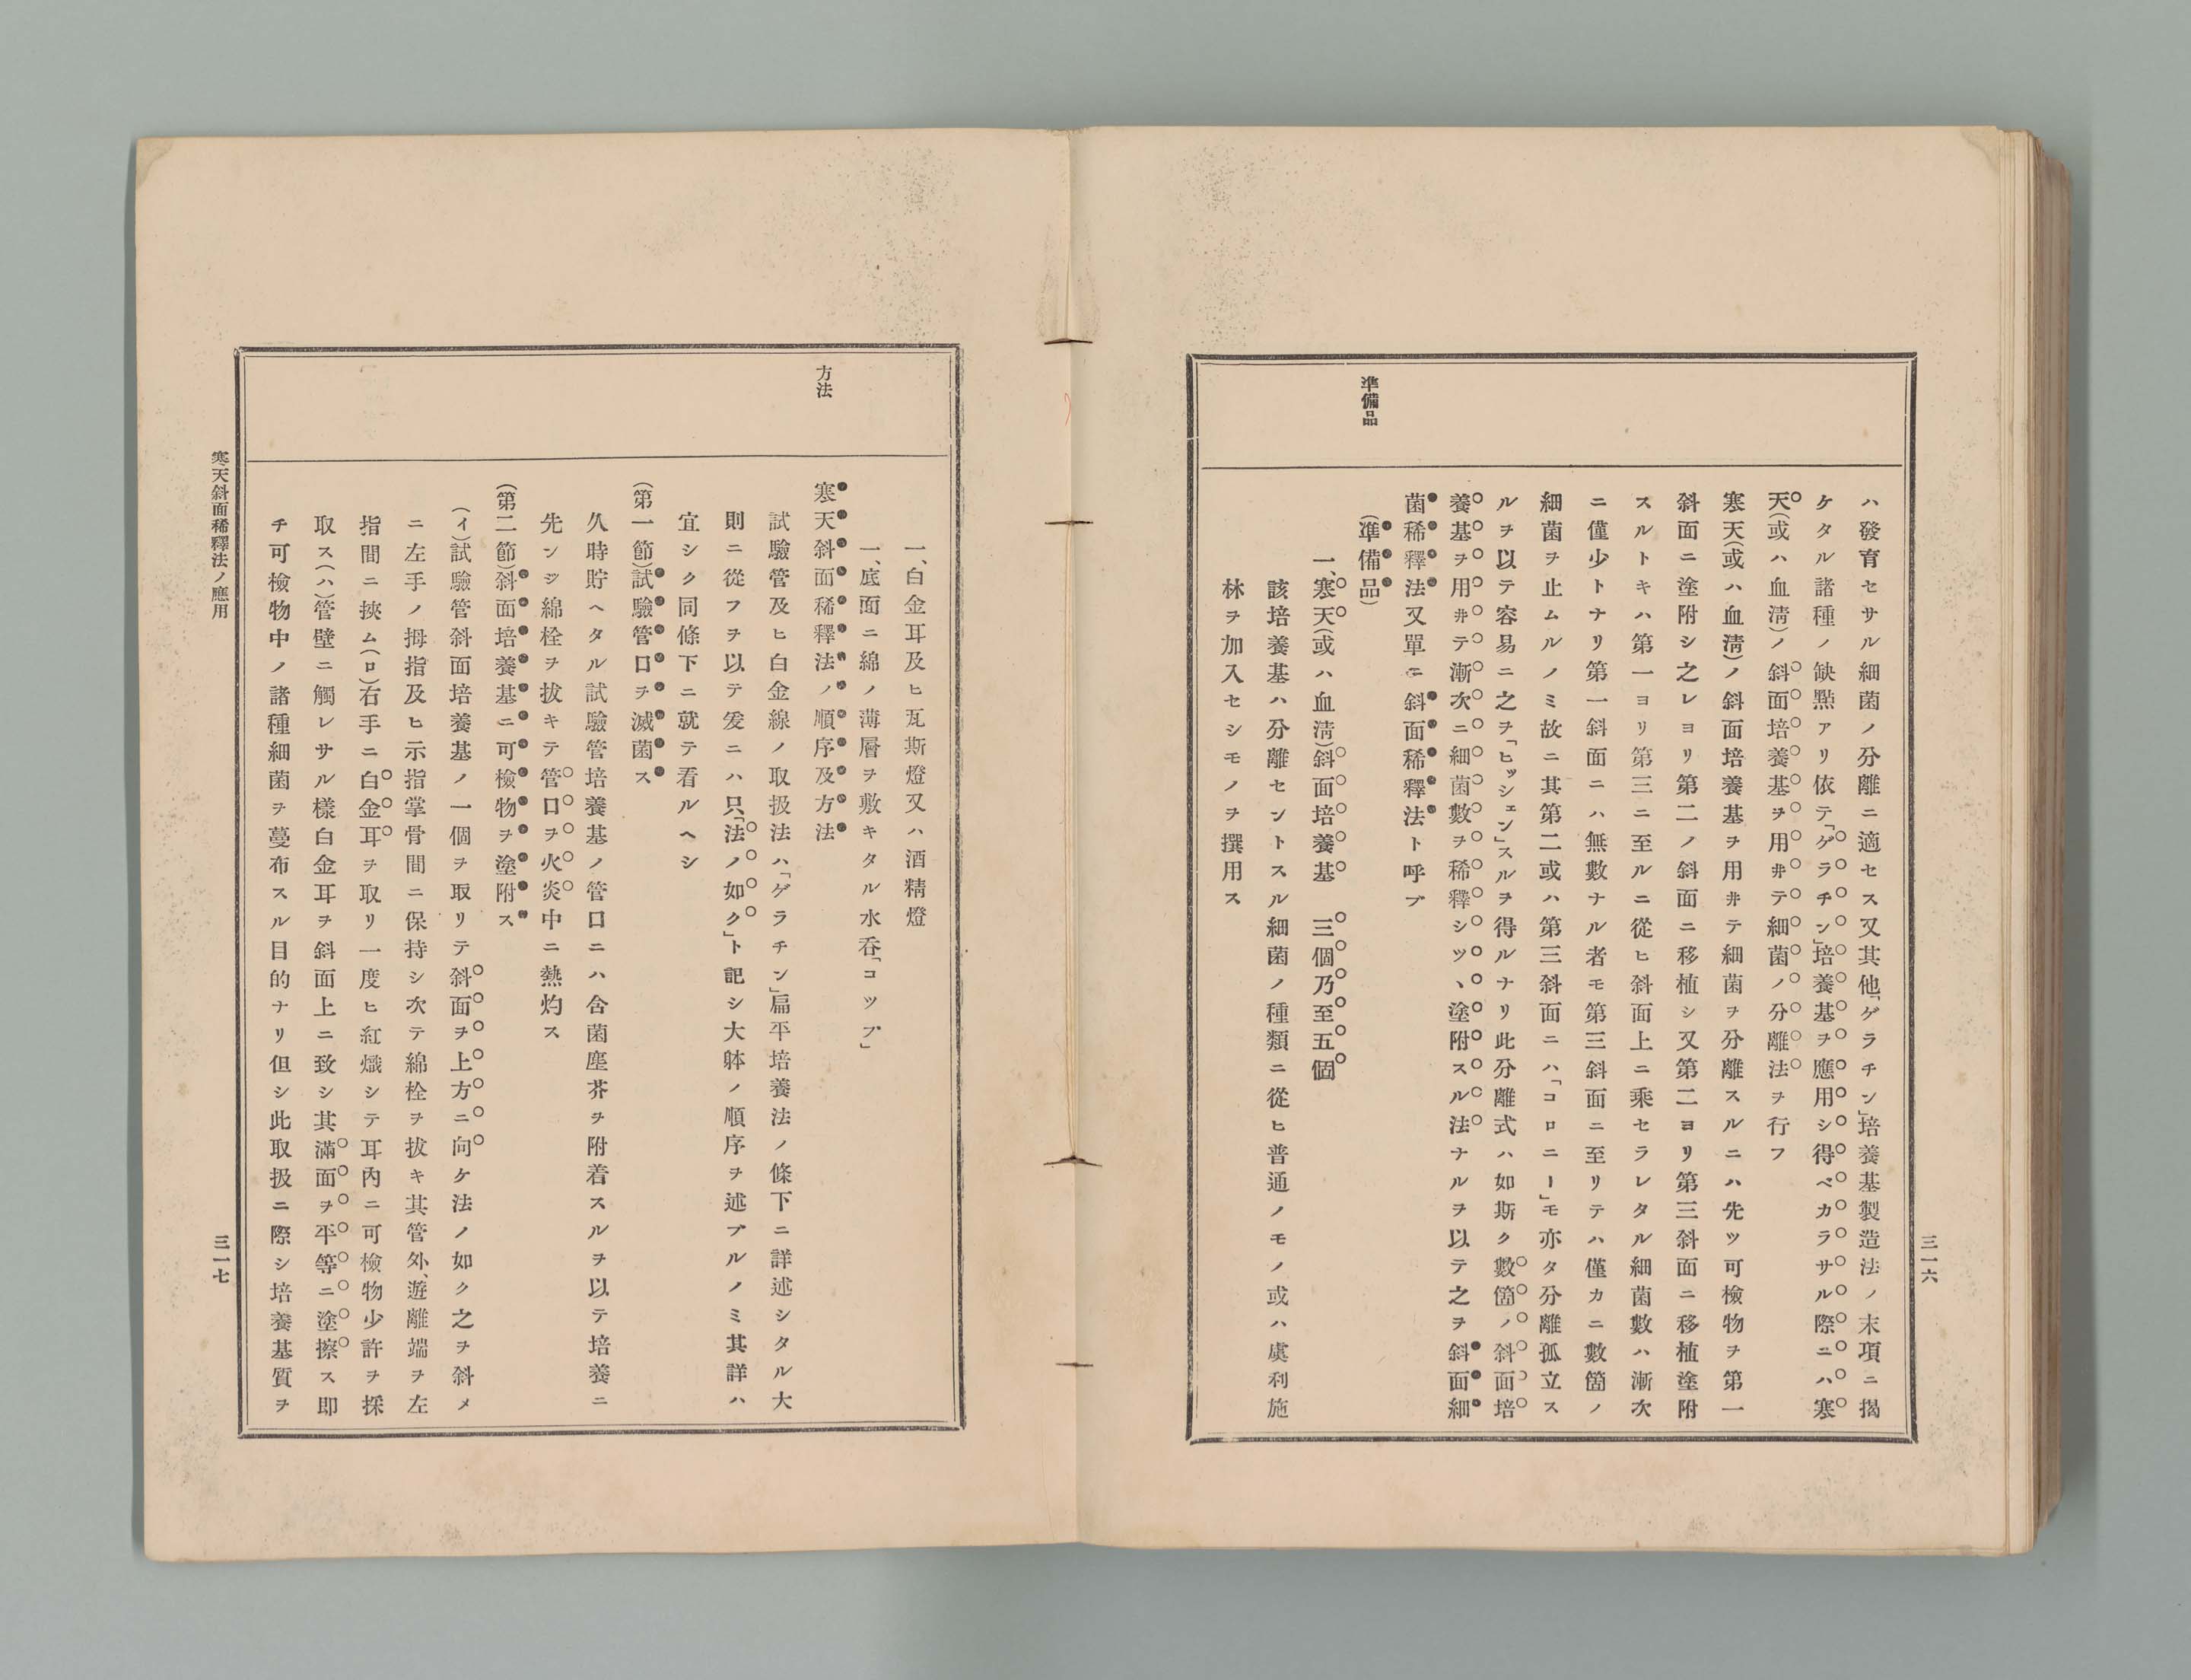 三一六
準備品
ハ發育セサル細菌ノ分離ニ適セス又其他「ゲラチン」培養基製造法ノ末項ニ揭
ケタル諸種ノ缺㸃アリ依テ「ゲラチン」培養基ヲ應用シ得ベカラサル際ニハ寒
天(或ハ血淸)ノ斜面培養基ヲ用井テ細菌ノ分離法ヲ行フ
寒天(或ハ血淸)ノ斜面培養基ヲ用井テ細菌ヲ分離スルニハ先ツ可檢物ヲ第一
斜面ニ塗附シ之レヨリ第二ノ斜面ニ移植シ又第二ヨリ第三斜面ニ移植塗附
スルトキハ第一ヨリ第三ニ至ルニ從ヒ斜面上ニ乘セラレタル細菌數ハ漸次
ニ僅少トナリ第一斜面ニハ無數ナル者モ第三斜面ニ至リテハ僅カニ數箇ノ
細菌ヲ止ムルノミ故ニ其第二或ハ第三斜面ニハ「コロニー」モ亦タ分離孤立ス
ルヲ以テ容易ニ之ヲ「ヒッシェン」スルヲ得ルナリ此分離式ハ如斯ク數箇ノ斜面培
養基ヲ用井テ漸次ニ細菌數ヲ稀釋シツヽ塗附スル法ナルヲ以テ之ヲ斜面細
菌稀釋法又單ニ斜面稀釋法ト呼ブ
(準備品)
一、寒天(或ハ血淸)斜面培養基 三個乃至五個
該培養基ハ分離セントスル細菌ノ種類ニ從ヒ普通ノモノ或ハ虞利施
林ヲ加入セシモノヲ撰用ス
方法
一、白金耳及ヒ瓦斯燈又ハ酒精燈
一、底面ニ綿ノ薄層ヲ敷キタル水呑「コップ」
寒天斜面稀釋法ノ順序及方法
試驗管及ヒ白金線ノ取扱法ハ「ゲラチン」扁平培養法ノ條下ニ詳述シタル大
則ニ從フヲ以テ爰ニハ只「法ノ如ク」ト記シ大躰ノ順序ヲ述ブルノミ其詳ハ
宜シク同條下ニ就テ看ルヘシ
(第一節)試驗管口ヲ滅菌ス
久時貯ヘタル試驗管培養基ノ管口ニハ含菌塵芥ヲ附着スルヲ以テ培養ニ
先ンジ綿栓ヲ拔キテ管口ヲ火炎中ニ熱灼ス
(第二節)斜面培養基ニ可檢物ヲ塗附ス
(イ)試驗管斜面培養基ノ一個ヲ取リテ斜面ヲ上方ニ向ケ法ノ如ク之ヲ斜メ
ニ左手ノ拇指及ヒ示指掌骨間ニ保持シ次テ綿栓ヲ拔キ其管外、遊離端ヲ左
指間ニ挾ム(ロ)右手ニ白金耳ヲ取リ一度ヒ紅熾シテ耳內ニ可檢物少許ヲ採
取ス(ハ)管壁ニ觸レサル樣白金耳ヲ斜面上ニ致シ其滿面ヲ平等ニ塗擦ス即
チ可檢物中ノ諸種細菌ヲ蔓布スル目的ナリ但シ此取扱ニ際シ培養基質ヲ
寒天斜面稀釋法ノ應用
三一七